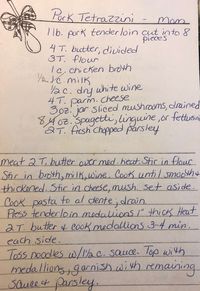 Pork Tetrazzini - mom
1 lb. pork tenderloin cut into 8
pieces
4 T. butter, divided
3 T. flour
1 c. chicken broth
1/2 c. milk
1/2 c. dry white wine
4 T. parm. cheese
3 oz. jar sliced mushrooms, drained
8 oz. Spagetti, linguine, or fettucini
2 T. fresh chopped parsley
meat 2 T. butter over med. heat. Stir in flour
Stir in broth, milk, wine. Cook until smooth &
thickened. Stir in cheese, mush. set aside.
Cook pasta to al dente, drain
Press tenderloin medallions 1" thick. Heat
2 T butter & cook medallions 3-4 min.
each side.
Toss noodles w/ 1 1/2 c. sauce. Top with
medallions, garnish with remaining
sauce & parsley.